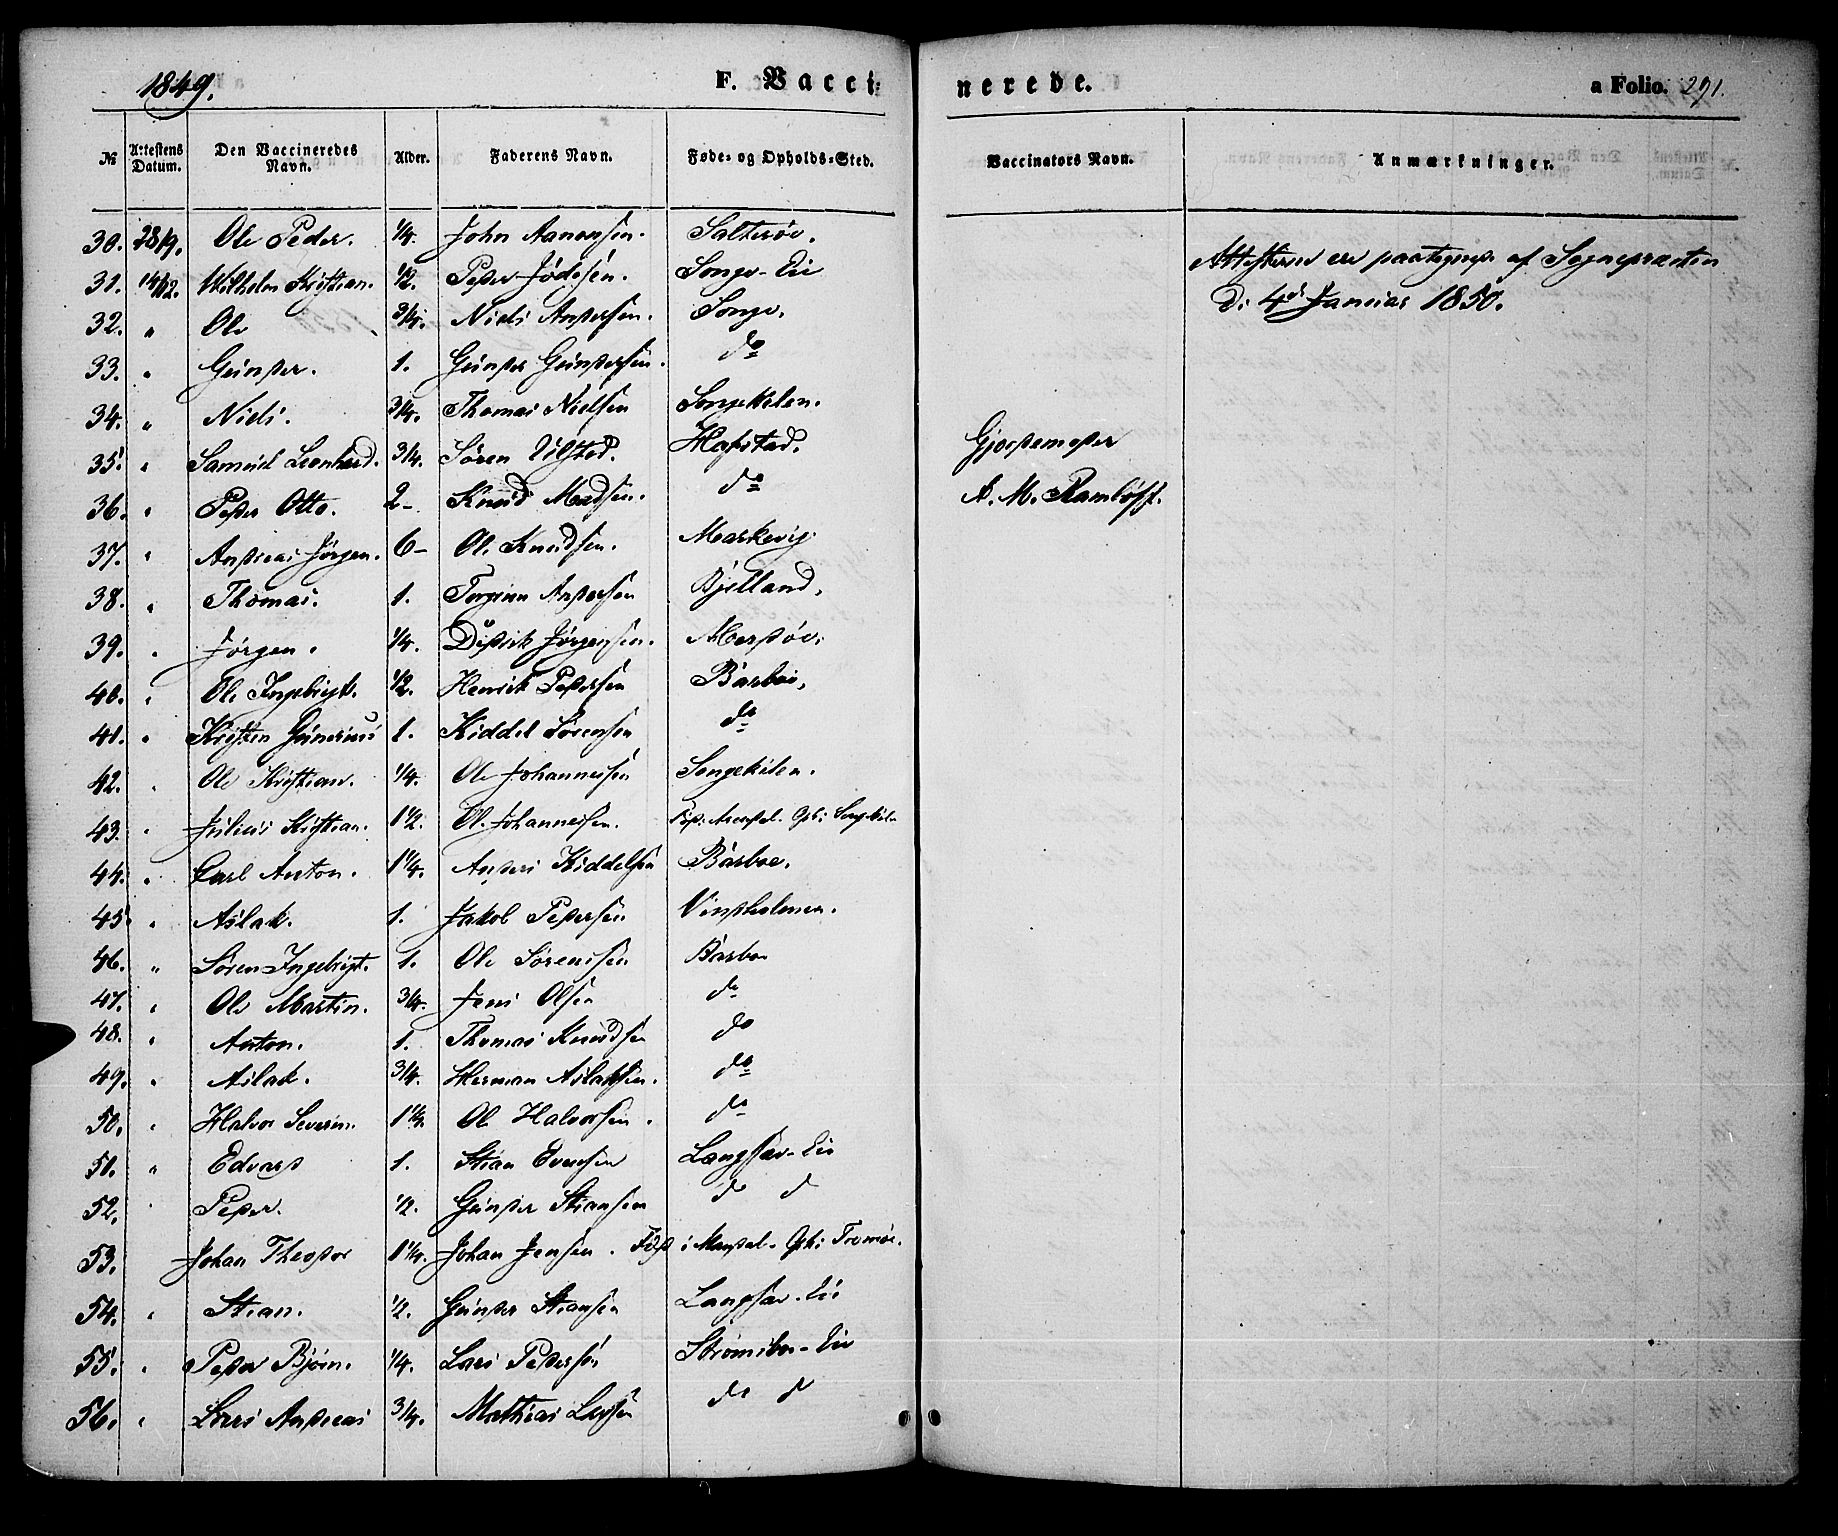 1849.
F. Vacci-
nerede.
a Folio. 291.
№ Attestens Datum. Den Vaccineredes Navn. Alder. Faderens Navn. Føde- og Opholds-Sted. Vaccinators Navn. Anmærkninger.
30. 28/9. Ole Peder. 1/4. John Aanonsen. Salterøe.
31. 14/12. Wilhelm Kristian. 1/2. Peder Jödesen. Songe-Eie
Attesterne ere paategnede af Sognepræsten
D: 4de Januar 1850.
32. " Ole 3/4. Niels Andersen. Songe.
33. " Gunder. 1. Gunder Gundersen. do
34. " Niels. 3/4. Thomas Nielsen Songekilen.
35. " Samuel Leonhard. 3/4. Sören Ulsted. Hafstad.
Gjordemoder
36. " Peder Otto. 2- Knud Madsen. do
A. M. Ramböff.
37. " Andreas Jörgen. 6- Ole Knudsen. Markevig
38. " Thomas. 1. Torgrim Andersen Bjelland.
39. " Jörgen. 1/4. Didrik Jörgensen. Merdöe.
40. " Ole Ingebrigt. 1/2. Henrik Pedersen Barboe,
41. " Kristen Gunerius 1. Kiddel Sörensen do
42. " Ole Kristian. 1/4. Ole Johannesen Songekilen.
43. " Julius Kristian. 1 1/2. Ole Johannesen. Föd i Arendal. Oph: Songekilen
44. " Carl Anton. 1 1/4. Anders Kiddelsen Barboe.
45. " Aslak. 1. Jakob Pedersen Vindholmen.
46. " Sören Ingebrigt. 1. Ole Sörensen Barboe
47. " Ole Martin. 3/4. Jens Olsen do
48. " Anton. 1. Thomas Knudsen do
49. " Aslak. 3/4. Herman Aslaksen. do
50. " Halvor Severin. 1 1/4. Ole Halvorsen. do
51. " Edvard 1. Stian Evensen Langsæv-Eie
52. " Peder. 1/2. Gunder Stiansen do do
53. Johan Theodor 1 1/4. Johan Jensen. Föd i Mandal. Oph: Tromöe.
54. " Stean. 1/2. Gunder Steansen Langsæv-Eie
55. " Peder Björn. 1/4. Lars Pedersen Strömsboe-Eie
56. " Lars Andreas 3/4. Mathias Larsen do do